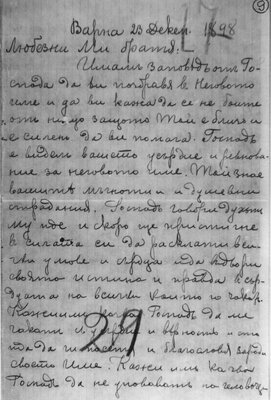 Варна 23 Декем. 1898
Любезни Ми братя:
Имам заповѣдъ отъ Го-
спода да ви поздравя въ Неговото
име и да ви кажа да се не боите
отъ нищо защото Той е близо и
е силенъ да ви помага. Господъ
е виделъ вашето усърдие и ревнова-
ние за неговото име. Той знае
вашитѣ мъчнотии и душевни
страдания. Господъ говори Духътъ
му иде и скоро ще пристигне
въ силата си да разклати вси-
чки умове и сърца и да въдвори
своята истина и правда въ сър-
дцата на всички които го чакатъ.
Кажи имъ казва Господъ да ме
чакатъ и вѣрность и
ида да ги посетя и благословя заради
своето Име. Кажи имъ казва
Господъ да не уповаватъ на человѣци